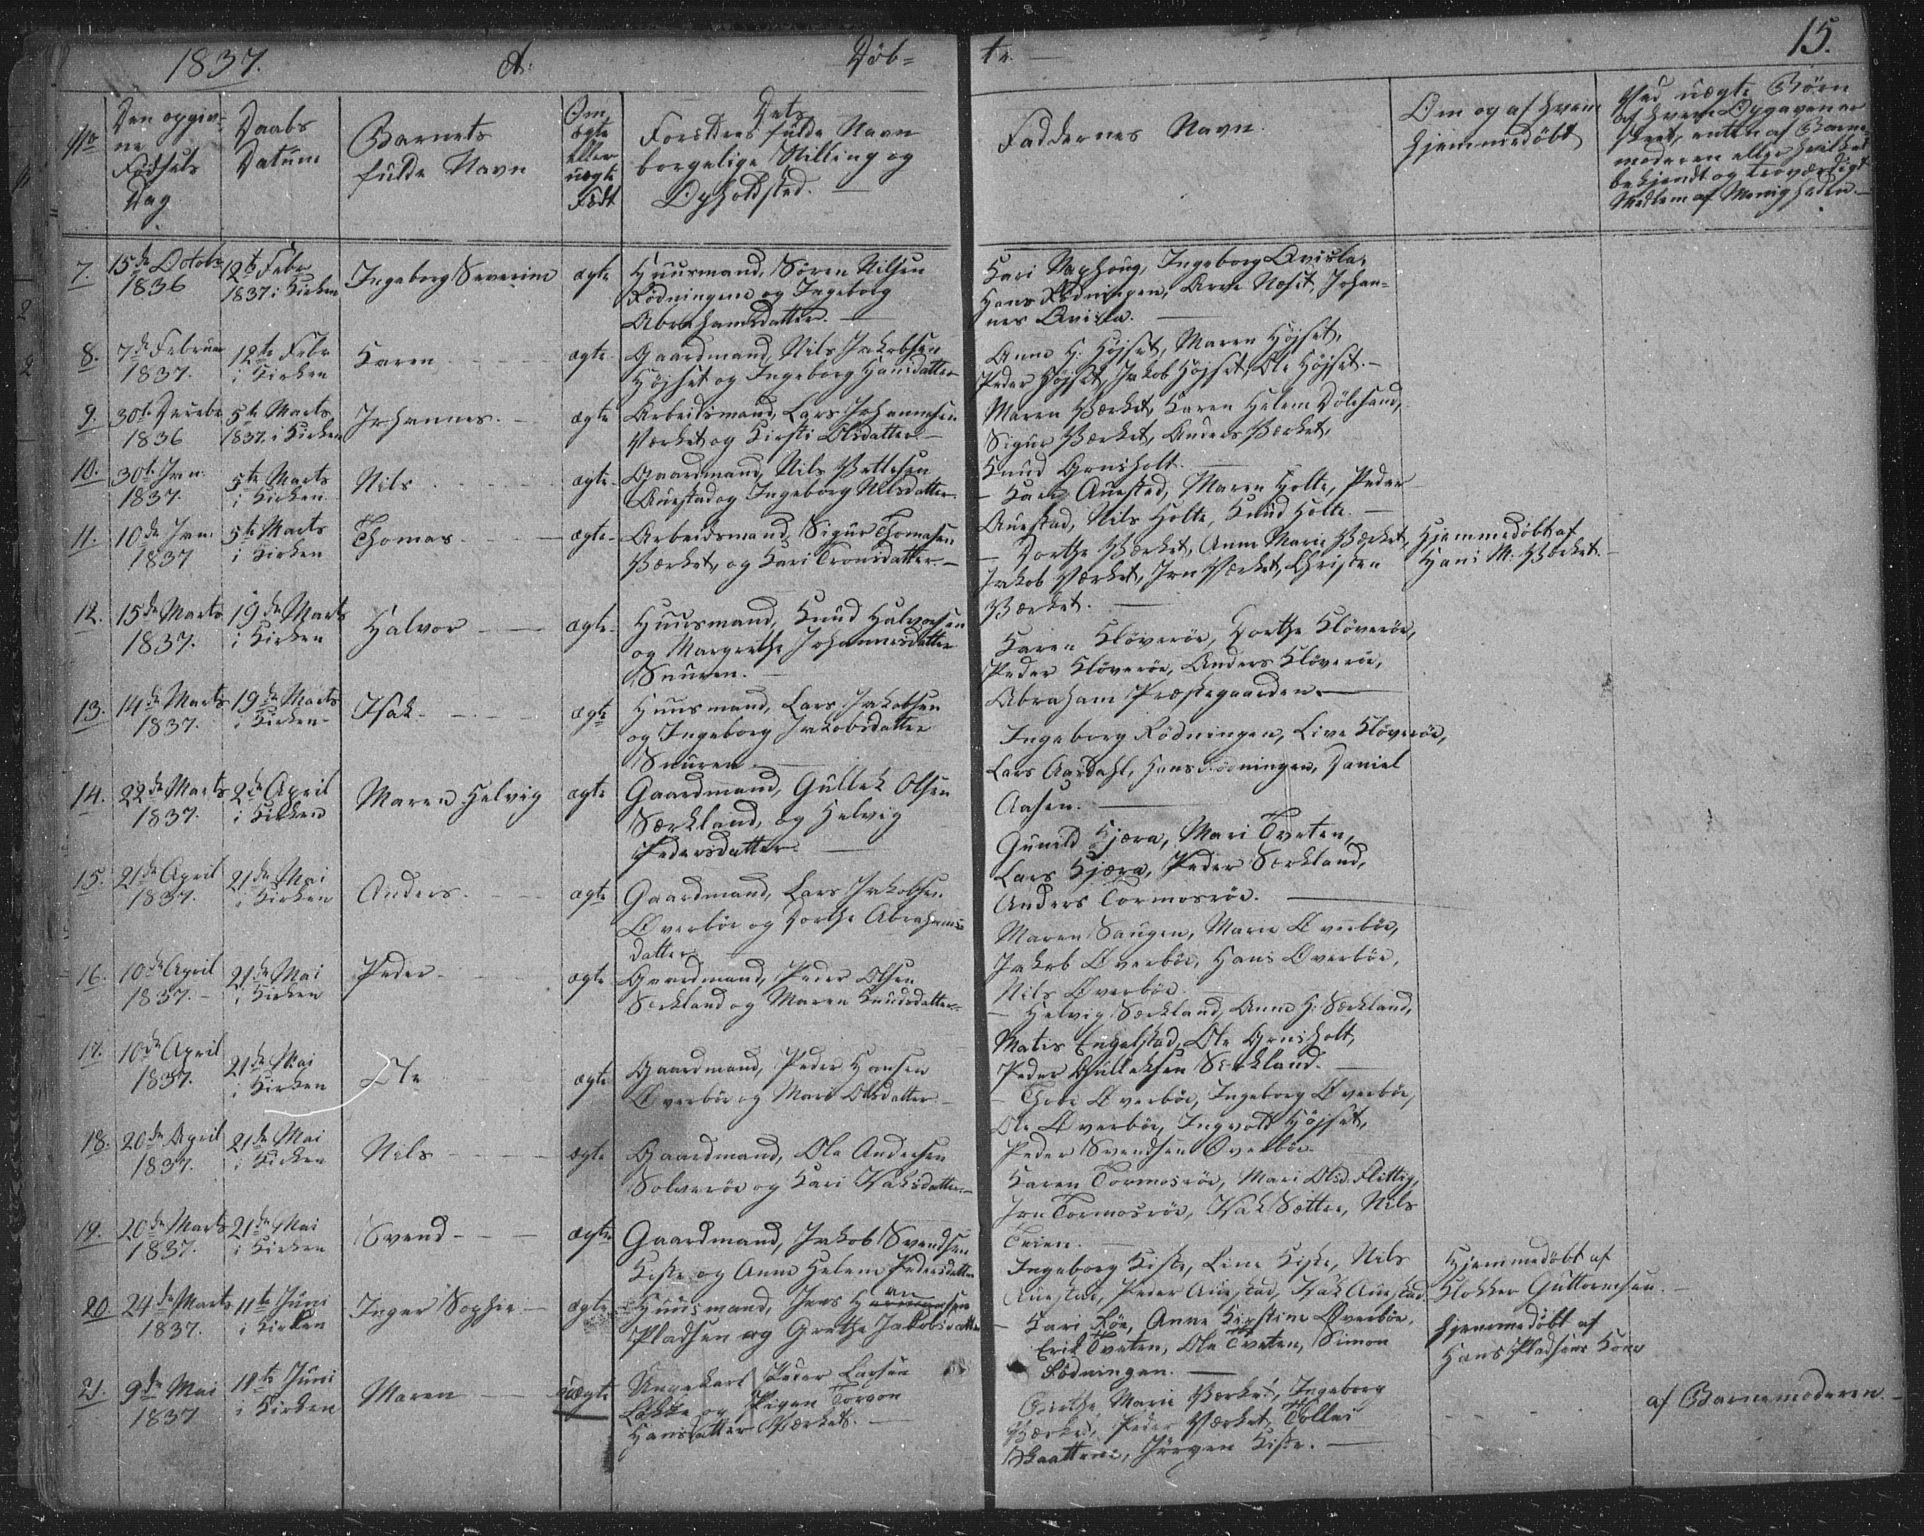 1837. A. Døb= te. 15.
No
Den opgiv-
ne
Fødsels
Dag.
Daabs
Datum
Barnets
fulde Navn
Om
ægte
eller
uægte
Født
Dets
Forældres fulde Navn
borgelige Stilling og
Opholdsted.
Faddernes Navn.
Om og af hvem
hjemmedøbt
Ved uægte Børn
af hvem Opgaven er
skeet, enten af Barne
moderen eller hvilket
bekjendt og troværdigt
Medlem af Menigheden.
7.
15de Octobr
1836
12te Febr
1837 i Kirken
Ingeborg Severine
ægte
Huusmand, Sören Nilsen
Rödningen og Ingeborg
Abrahamsdatter.
Kari Naphoug, Ingeborg Qvisla,
Hans Rödningen, Arne Næset, Johan-
nes Qvisla.
8.
7de Februar
1837.
12te Febr
i Kirken
Karen
ægte
Gaardmand, Nils Jakobsen
Höjset og Ingeborg Hansdatter
Anne H. Höjset, Maren Höjset,
Peder Höjset, Jakob Höjset, Ole Höjset.
9.
30te Decebr
1836
5te Marts
1837 i Kirken
Johannes.
ægte
Arbeidsmand, Lars Johannesen
Værket og Kirsti Olsdatter
Maren Værket, Karen Helene Dölesand,
Sigur Værket, Anders Værket,
Knud Grnsholt.
10.
30te Jan.
1837.
5te Marts
i Kirken
Nils
ægte
Gaardmand, Nils Pettersen
Auestad og Ingeborg Nilsdatter
Kari Auestad, Maren Holte, Peder
Auestad, Nils Holte, Knud Holte.
11.
10de Jan.
1837
5te Marts
i Kirken
Thomas
ægte
Arbeidsmand, Sigur Thomasen
Værket, og Kari Tronsdatter
Dorthe Værket, Anne Marie Værket,
Jakob Værket, Jon Værket, Christen
Værket.
Hjemmedöbt af
Hans M. Værket.
12.
15de Marts
1837.
19de Marts
i Kirken
Halvor
ægte
Huusmand, Knud Halvorsen
og Margrethe Johannesdatter
Snuren.
Karen Klöveröe, Dorthe Klöveröe,
Peder Klöveröe, Anders Klöveröe,
Abraham Præstegaarden.
13.
14de Marts
1837.
19de Marts
i Kirken
Isak
ægte
Huusmand, Lars Jakobsen
og Ingeborg Jakobsdatter
Snuren
Ingeborg Rödningen, Live Klöveröe,
Lars Aardahl, Hans Rödningen, Daniel
Aasen.
14.
22de Marts
1837.
2de April
i Kirken
Maren Helvig
ægte
Gaardmand, Gullek Olsen
Særkland, og Helvig
Pedersdatter
Gunild Kjæra, Mari Tveten,
Lars Kjæra, Peder Særkland,
Anders Tormosröe.
15.
21de April
1837.
21de Mai
i Kirken
Anders.
ægte
Gaardmand, Lars Jakobsen
Overböe og Dorthe Abrahams-
datter
Maren Haugen, Marie Overböe,
Jakob Overböe, Hans Overböe,
Nils Overböe.
16.
10de April
1837.
21de Mai
i Kirken
Peder
ægte
Gaardmand, Peder Olsen
Særkland og Maren Knudsdatter
Helvig Særkland, Anne H. Særkland,
Mates Engelstad, Ole Grnsholt,
Peder Gulleksen Særkland.
17.
10de April
1837.
21de Mai
i Kirken
Ole
ægte
Gaardmand, Peder Hansen
Overböe og Mari Olsdatter
Thobe Overböe, Ingeborg Overböe,
Ole Overböe, Ingvold Höjset,
Peder Svendsen Overböe
18.
20de April
1837.
21de Mai
i Kirken
Nils
ægte
Gaardmand, Ole Andersen
Solveröe og Kari Isaksdatter
Karen Tormosröe, Mari Olsd: Flittig,
Jon Tormosröe, Isak Sætter, Nils
Teien.
19.
20de Marts
1837.
21de Mai
i Kirken
Svend
ægte
Gaardmand, Jakob Svendsen
Kiste og Anne Helene Pedersdatter
Ingeborg Kiste, Line Kiste, Nils
Auestad, Peder Auestad, Isak Auestad
Hjemmedöbt af
Klokker Guttormsen.
20.
24de Marts
1837.
11te Juni
i Kirken
Inger Sophie
ægte
Huusmand, Jens Hansen
Pladsen og Grethe Jakobsdatter
Kari Röe, Anne Kirstine Overböe,
Erik Tveten, Ole Tveten, Simon
Rödningen.
Hjemmedöbt af
Hans Pladsens Kone
21.
9de Mai
1837
18te Juni
i Kirken
Maren
uægte
Ungekarl Peder Larsen
Lakke og Pigen Torvor
Hansdatter Værket.
Dorthe Marie Værket, Ingeborg
Værket, Peder Værket, Tollei
Skaatteröe, Jörgen Kiste.
af Barnemoderen.